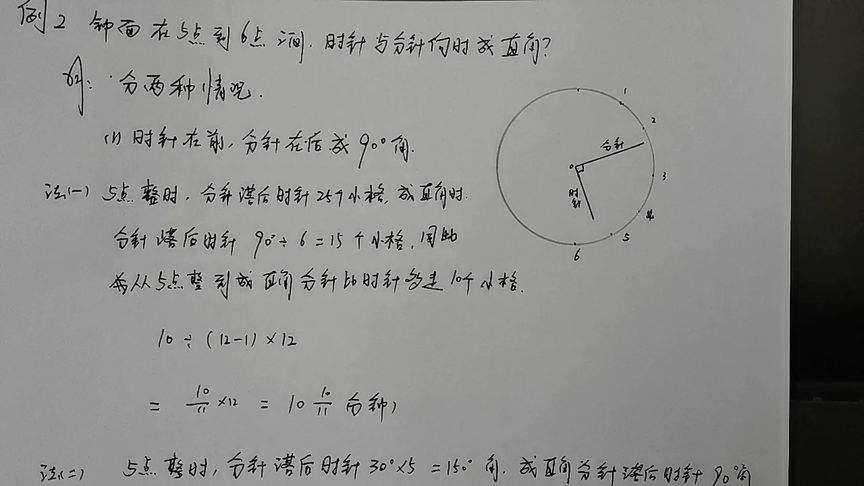 例2 钟面在5点到6点之间.时针与分针何时成直角?
解: 分两种情况.
(1) 时针在前,分针在后成90°角.
法(一) 5点整时,分针落后时针25个小格,成直角时.
分针落后时针 90°÷6=15个小格,因此
从5点整到成直角分针比时针多走10个小格.
10÷(12-1)×12
= 10/11 ×12 = 10 10/11 分钟)
法(二) 5点整时,分针落后时针30°×5=150°角.成直角分针落后时针90°角
1
2
分针
0
3
时针
4
5
6